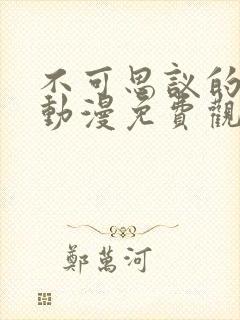 不可思議的
動漫免費觀
鄭萬河